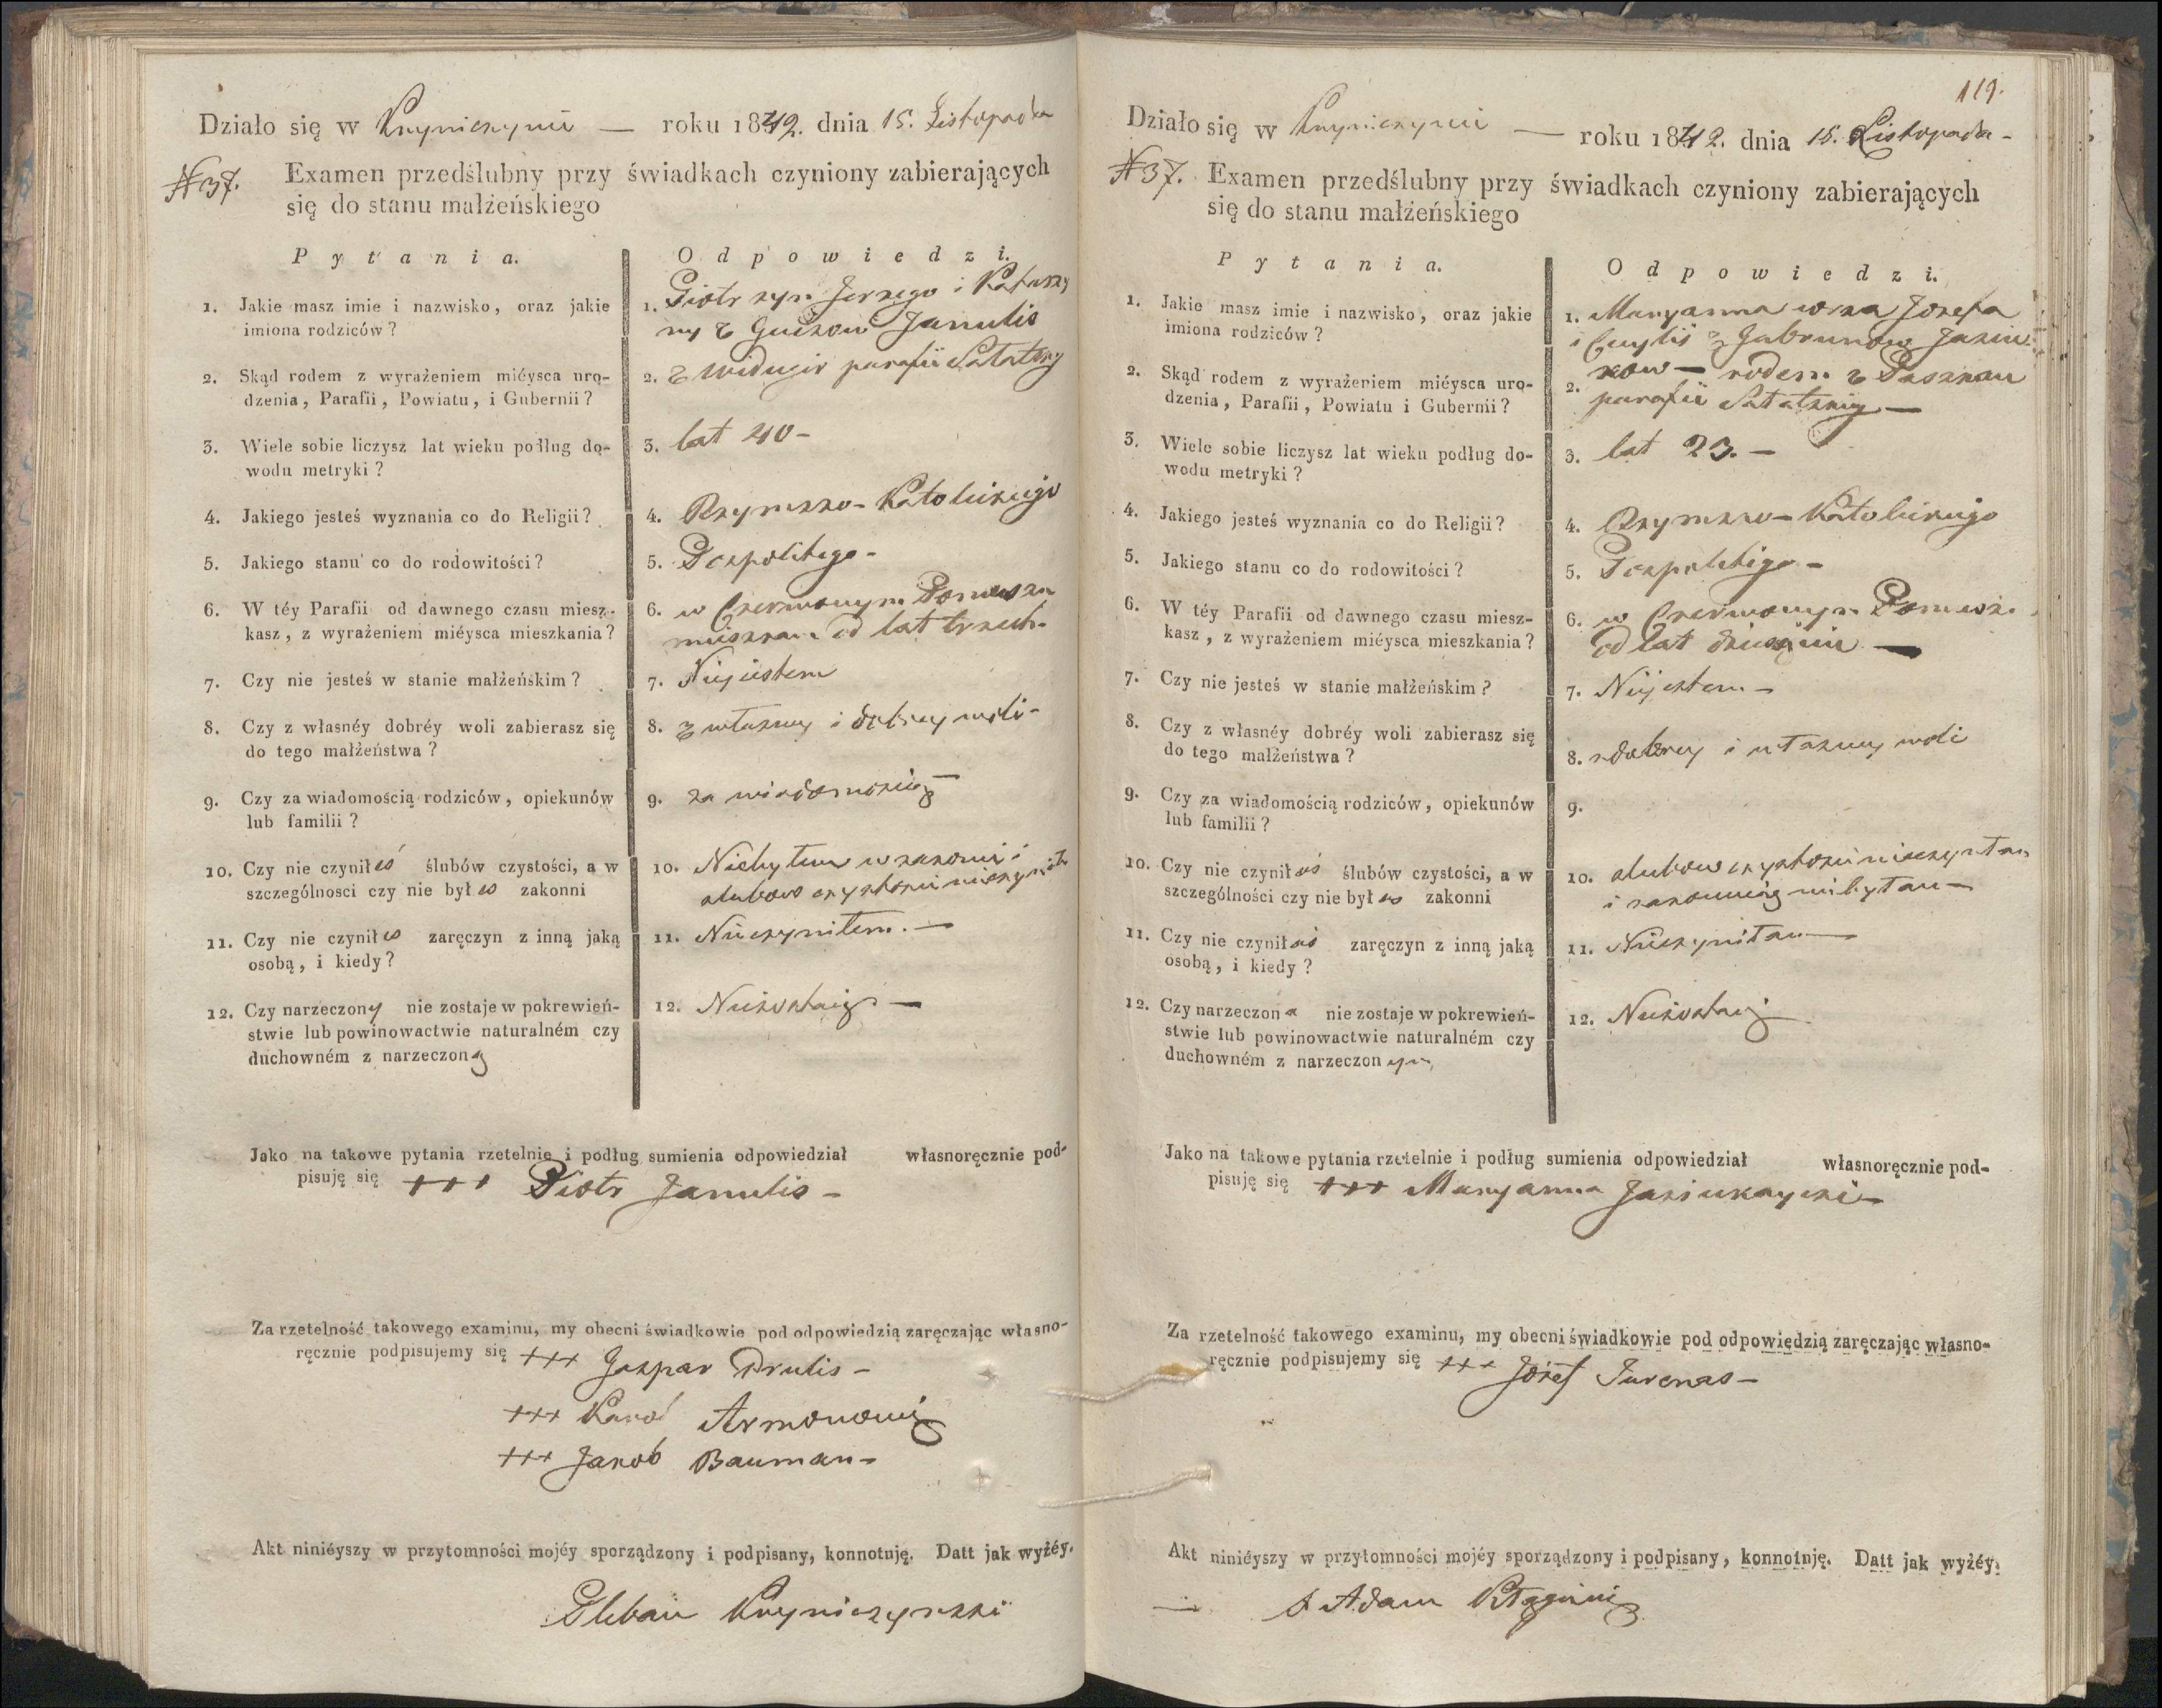 Działo się w Kryniczynie — roku 1842. dnia 15. Listopada
N 37. Examen przedślubny przy świadkach czyniony zabierających
się do stanu małżeńskiego
Pytania. Odpowiedzi.
1. Jakie masz imie i nazwisko, oraz jakie
imiona rodziców?
1. Piotr syn Jerzego i Katarzy
ny z Guzow Janulis
2. Skąd rodem z wyrażeniem miéysca uro-
dzenia, Parafii, Powiatu, i Gubernii?
2. z parafii
3. Wiele sobie liczysz lat wieku podług do-
wodu metryki?
3. lat 40 -
4. Jakiego jesteś wyznania co do Religii?
4. Rzymsko-Katolickiego
5. Jakiego stanu co do rodowitości?
5. Pospolitego -
6. W téy Parafii od dawnego czasu miesz-
kasz, z wyrażeniem miéysca mieszkania?
6. w Czerwonym
mieszkam od lat trzech -
7. Czy nie jesteś w stanie małżeńskim?
7. Niejestem
8. Czy z własnéy dobréy woli zabierasz się
do tego małżeństwa?
8. z własney i dobrey woli -
9. Czy za wiadomością rodziców, opiekunów
lub familii?
9. za wiadomością —
10. Czy nie czyniłeś ślubów czystości, a w
szczególnosci czy nie byłes zakonni
10. Niebyłem w zakonie i
slubow czystosci nieczyniłem
11. Czy nie czyniłes zaręczyn z inną jaką
osobą, i kiedy?
11. Nieczyniłem. —
12. Czy narzeczony nie zostaje w pokrewień-
stwie lub powinowactwie naturalném czy
duchowném z narzeczoną
12. Niezostaię —
Jako na takowe pytania rzetelnie i podług sumienia odpowiedział własnoręcznie pod-
pisuję się +++ Piotr Janulis -
Za rzetelność takowego examinu, my obecni świadkowie pod odpowiedzią zaręczając własno-
ręcznie podpisujemy się +++ Gaspar Drulis -
+++ Karol Armonowicz
+++ Jakob Bauman -
Akt niniéyszy w przytomności mojéy sporządzony i podpisany, konnotuję. Datt jak wyżéy.
Pleban Kryniczynski
119.
Działo się w Kryniczynie — roku 1842. dnia 15. Listopada -
N 37. Examen przedślubny przy świadkach czyniony zabierających
się do stanu małżeńskiego
Pytania. Odpowiedzi.
1. Jakie masz imie i nazwisko, oraz jakie
imiona rodziców?
1. Maryanna corka Jozefa
i z Gabrunow
2. Skąd rodem z wyrażeniem miéysca uro-
dzenia, Parafii, Powiatu i Gubernii?
— rodem z
2. parafii —
3. Wiele sobie liczysz lat wieku podług do-
wodu metryki?
3. lat 23. —
4. Jakiego jesteś wyznania co do Religii?
4. Rzymsko-Katolickiego
5. Jakiego stanu co do rodowitości?
5. Pospolitego -
6. W téy Parafii od dawnego czasu miesz-
kasz, z wyrażeniem miéysca mieszkania?
6. w Czerwonym
od lat —
7. Czy nie jesteś w stanie małżeńskim?
7. Niejestem -
8. Czy z własnéy dobréy woli zabierasz się
do tego małżeństwa?
8. z dobrey i własney woli
9. Czy za wiadomością rodziców, opiekunów
lub familii?
9.
10. Czy nie czyniłaś ślubów czystości, a w
szczególności czy nie byłas zakonni
10. slubow czystosci nieczyniłam
i zakonnicą niebyłam —
11. Czy nie czyniłaś zaręczyn z inną jaką
osobą, i kiedy?
11. Nieczyniłam —
12. Czy narzeczona nie zostaje w pokrewień-
stwie lub powinowactwie naturalném czy
duchowném z narzeczonym
12. Niezostaię —
Jako na takowe pytania rzetelnie i podług sumienia odpowiedział własnoręcznie pod-
pisuję się +++ Maryanna
Za rzetelność takowego examinu, my obecni świadkowie pod odpowiedzią zaręczając własno-
ręcznie podpisujemy się +++ Józef Turenas -
Akt niniéyszy w przytomności mojéy sporządzony i podpisany, konnotuję. Datt jak wyżéy.
— X Adam